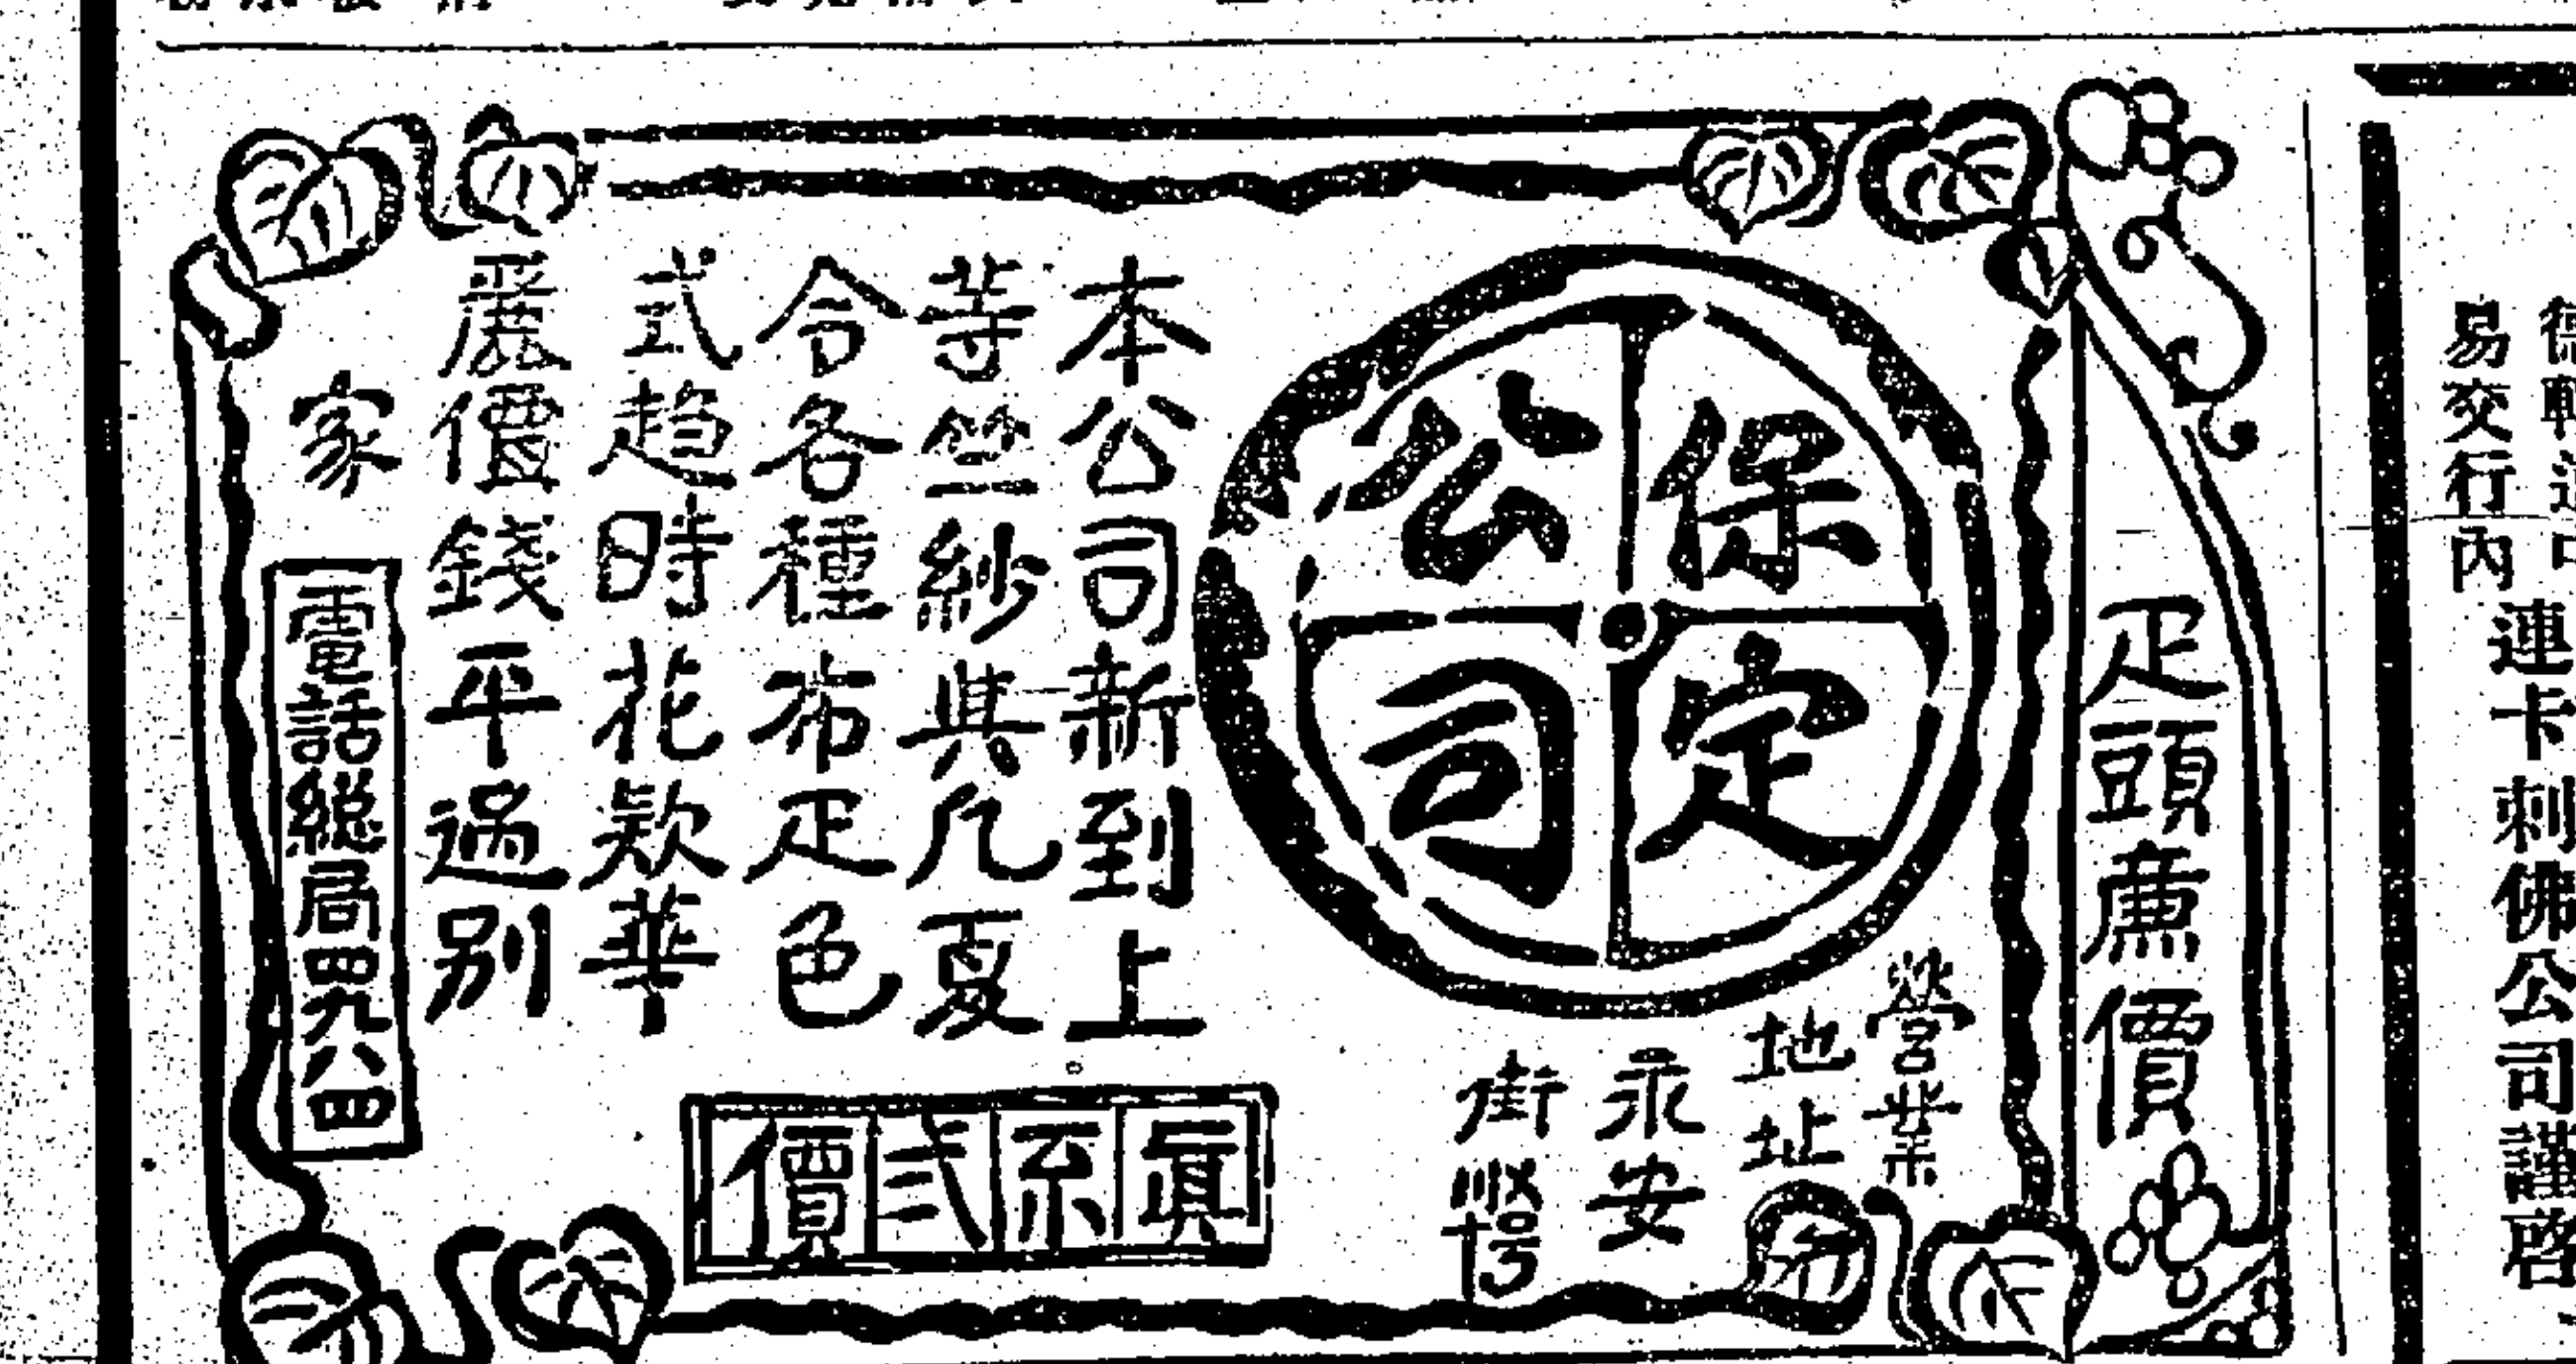 疋頭廉價
保定公司
營業
地址
永安
街
號
本公司新到上
等竺紗與凡夏
令各種布疋色
式趋時花欵華
麗價錢平過別
家
真不式價
電話總局四九八四
易交行內
連卡刺佛公司謹啓